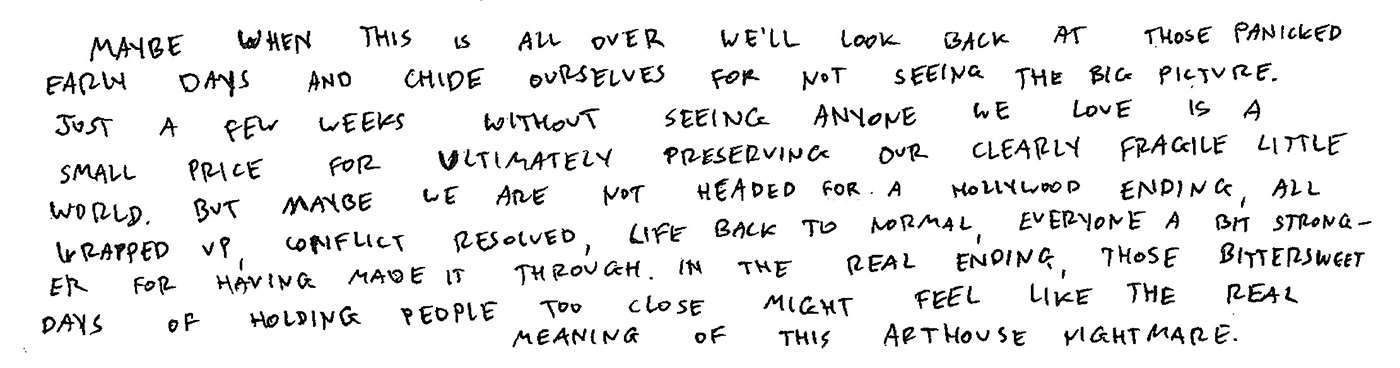 MAYBE WHEN THIS IS ALL OVER WE'LL LOOK BACK AT THOSE PANICKED
EARLY DAYS AND CHIDE OURSELVES FOR NOT SEEING THE BIG PICTURE.
JUST A FEW WEEKS WITHOUT SEEING ANYONE WE LOVE IS A
SMALL PRICE FOR ULTIMATELY PRESERVING OUR CLEARLY FRAGILE LITTLE
WORLD. BUT MAYBE WE ARE NOT HEADED FOR A HOLLYWOOD ENDING, ALL
WRAPPED UP, CONFLICT RESOLVED, LIFE BACK TO NORMAL, EVERYONE A BIT STRONG-
ER FOR HAVING MADE IT THROUGH. IN THE REAL ENDING, THOSE BITTERSWEET
DAYS OF HOLDING PEOPLE TOO CLOSE MIGHT FEEL LIKE THE REAL
MEANING OF THIS ARTHOUSE NIGHTMARE.